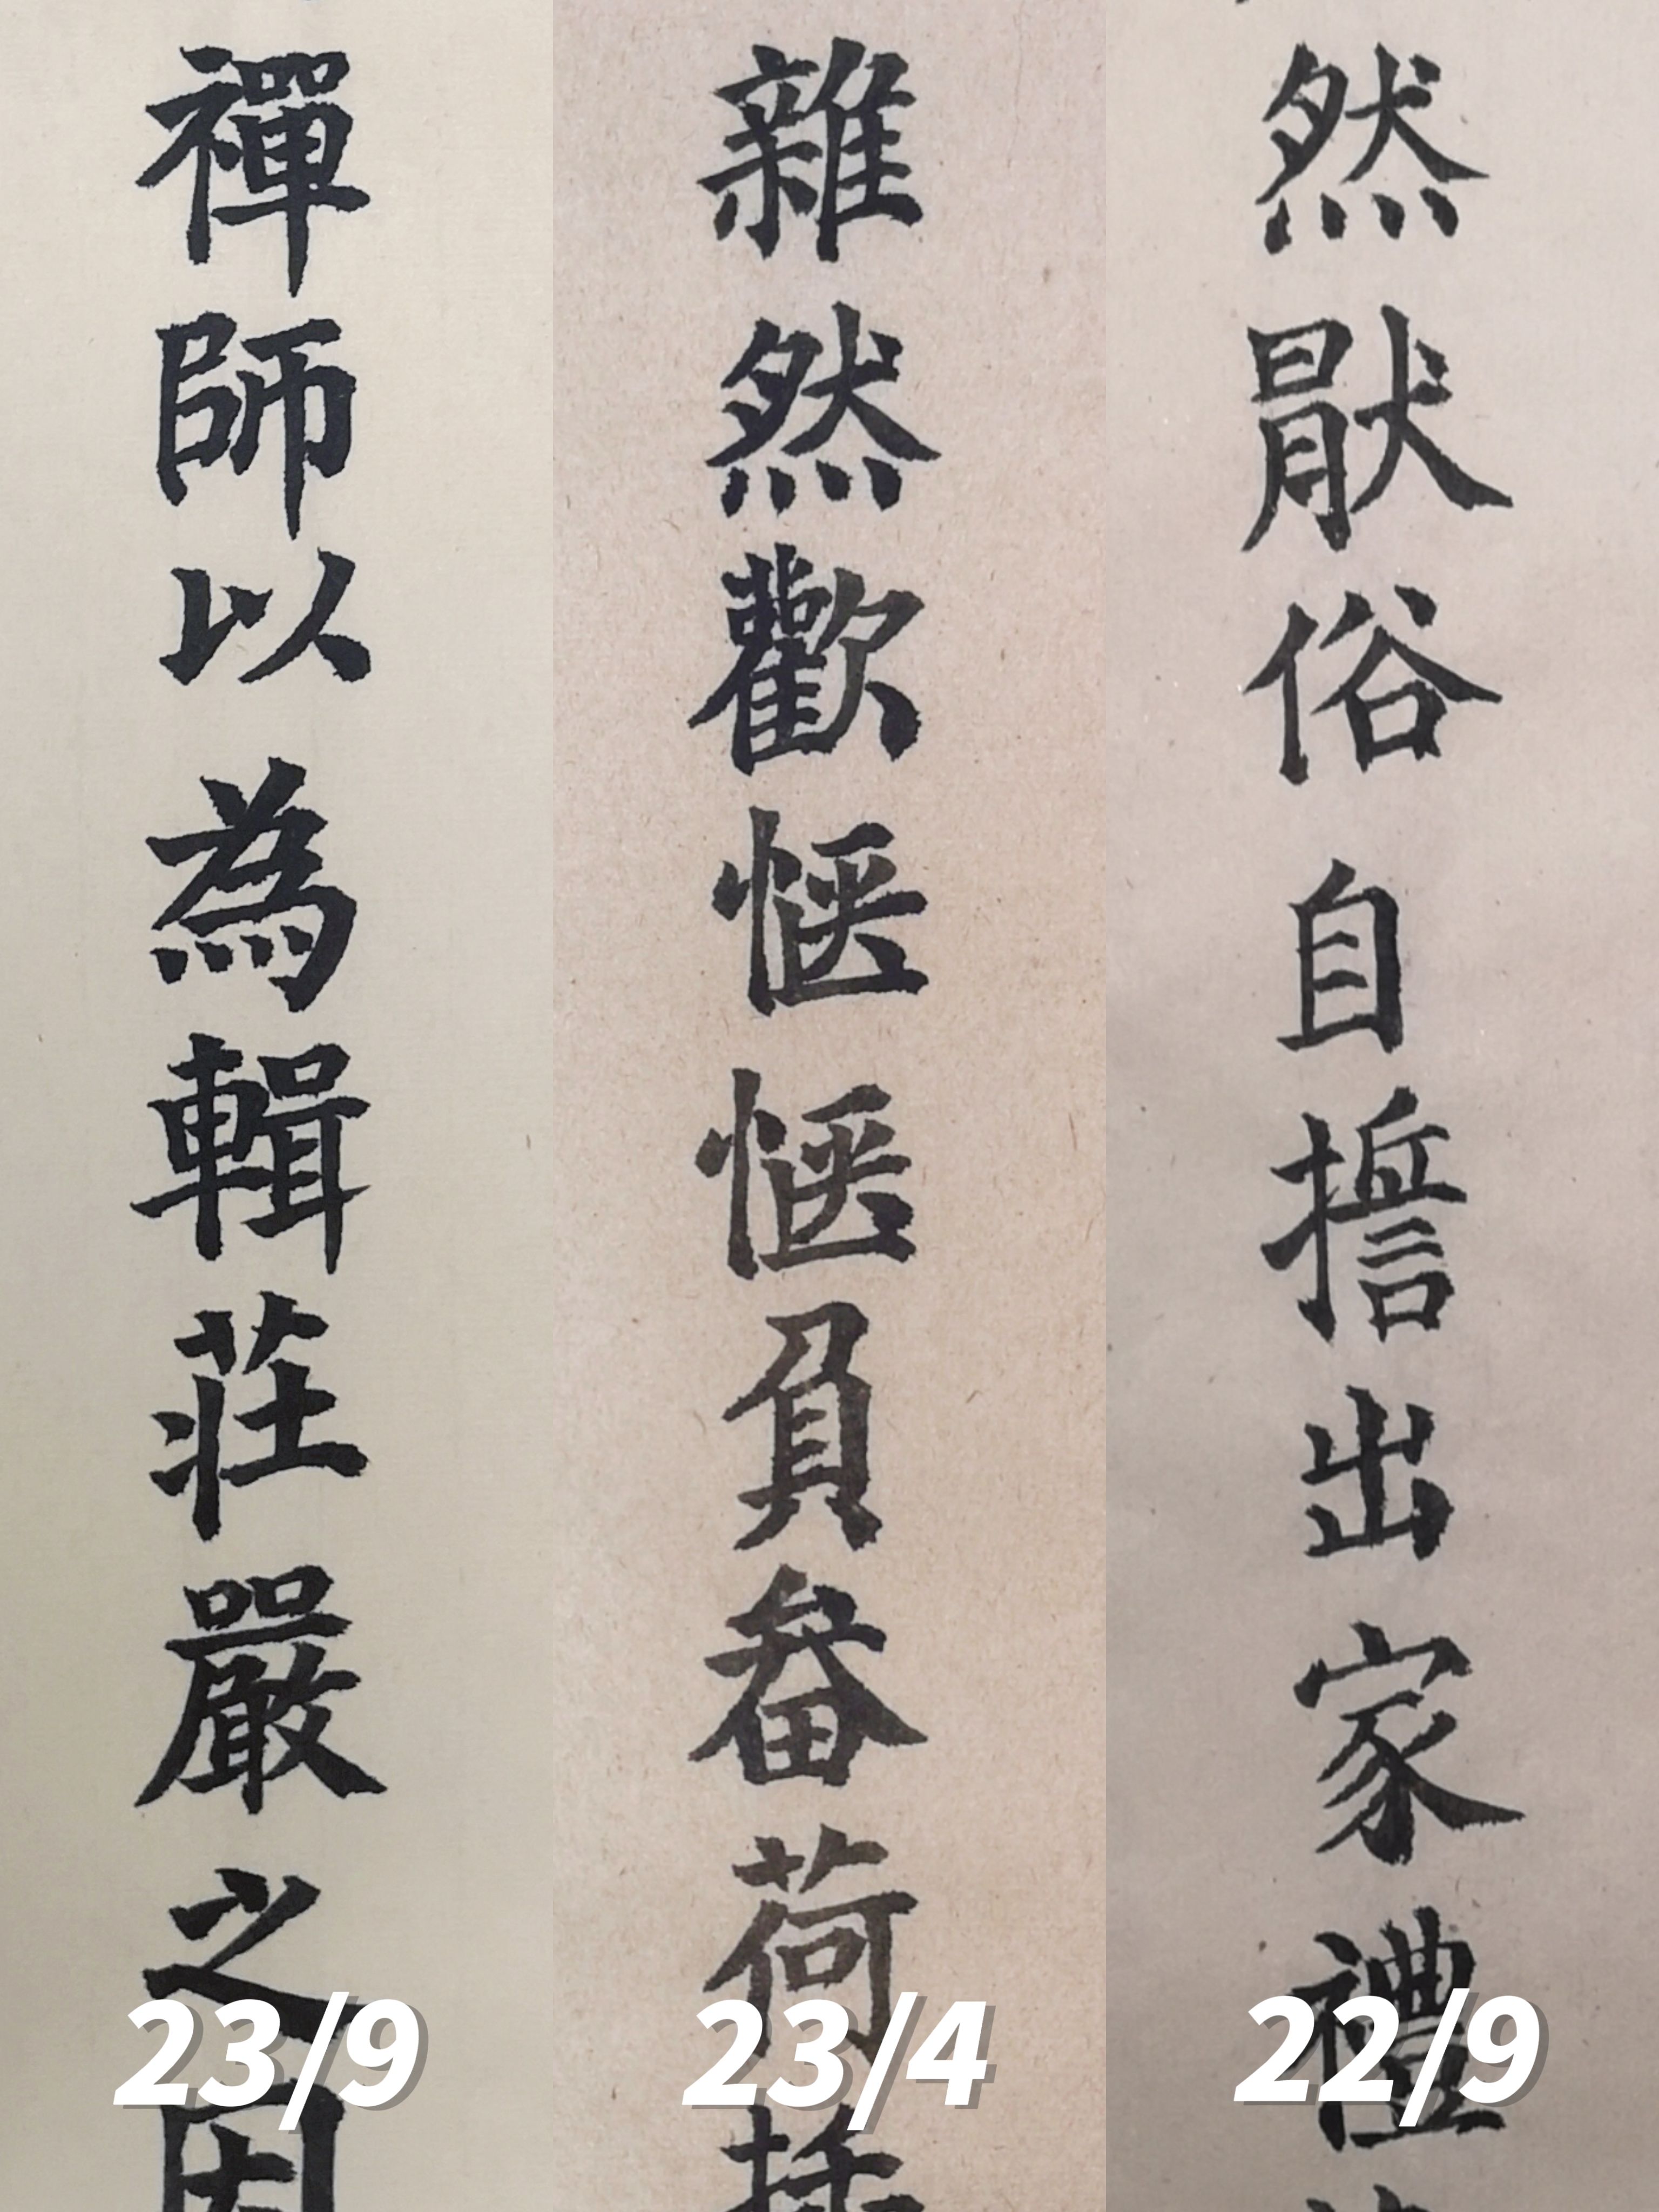 然猒俗自誓出家禮
22/9
雜然歡愜愜負畚荷
23/4
禪師以為輯莊嚴之因
23/9